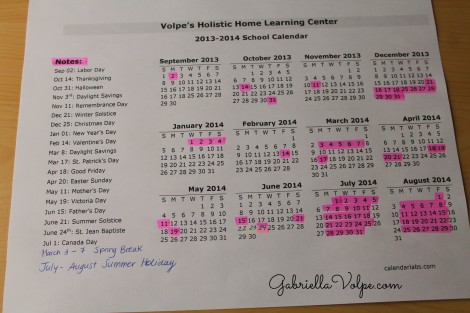 Volpe's Holistic Home Learning Center
2013-2014 School Calendar
Notes:
Sep 02: Labor Day
Oct 14: Thanksgiving
Oct 31: Halloween
Nov 3rd: Daylight Savings
Nov 11: Remembrance Day
Dec 21: Winter Solstice
Dec 25: Christmas Day
Jan 01: New Year's Day
Feb 14: Valentine's Day
Mar 8: Daylight Savings
Mar 17: St. Patrick's Day
Apr 18: Good Friday
Apr 20: Easter Sunday
May 11: Mother's Day
May 19: Victoria Day
Jun 15: Father's Day
June 21: Summer Solstice
June 24th: St. Jean Baptiste
Jul 1: Canada Day
March 3 - 7 Spring Break
July - August Summer Holiday
September 2013
S M T W T F S
1 2 3 4 5 6 7
8 9 10 11 12 13 14
15 16 17 18 19 20 21
22 23 24 25 26 27 28
29 30
October 2013
S M T W T F S
1 2 3 4 5
6 7 8 9 10 11 12
13 14 15 16 17 18 19
20 21 22 23 24 25 26
27 28 29 30 31
November 2013
S M T W T F S
1 2
3 4 5 6 7 8 9
10 11 12 13 14 15 16
17 18 19 20 21 22 23
24 25 26 27 28 29 30
December 2013
S M T W T F S
1 2 3 4 5 6 7
8 9 10 11 12 13 14
15 16 17 18 19 20 21
22 23 24 25 26 27 28
29 30 31
January 2014
S M T W T F S
1 2 3 4
5 6 7 8 9 10 11
12 13 14 15 16 17 18
19 20 21 22 23 24 25
26 27 28 29 30 31
February 2014
S M T W T F S
1
2 3 4 5 6 7 8
9 10 11 12 13 14 15
16 17 18 19 20 21 22
23 24 25 26 27 28
March 2014
S M T W T F S
1
2 3 4 5 6 7 8
9 10 11 12 13 14 15
16 17 18 19 20 21 22
23 24 25 26 27 28 29
30 31
April 2014
S M T W T F S
1 2 3 4 5
6 7 8 9 10 11 12
13 14 15 16 17 18 19
20 21 22 23 24 25 26
27 28 29 30
May 2014
S M T W T F S
1 2 3
4 5 6 7 8 9 10
11 12 13 14 15 16 17
18 19 20 21 22 23 24
25 26 27 28 29 30 31
June 2014
S M T W T F S
1 2 3 4 5 6 7
8 9 10 11 12 13 14
15 16 17 18 19 20 21
22 23 24 25 26 27 28
29 30
July 2014
S M T W T F S
1 2 3 4 5
6 7 8 9 10 11 12
13 14 15 16 17 18 19
20 21 22 23 24 25 26
27 28 29 30 31
August 2014
S M T W T F S
1 2
3 4 5 6 7 8 9
10 11 12 13 14 15 16
17 18 19 20 21 22 23
24 25 26 27 28 29 30
31
calendarlabs.com
Gabriella Volpe.com